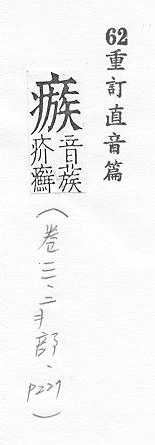 62重訂直音篇
瘯
音蔟
疥癬
（卷三、疒部、P227）